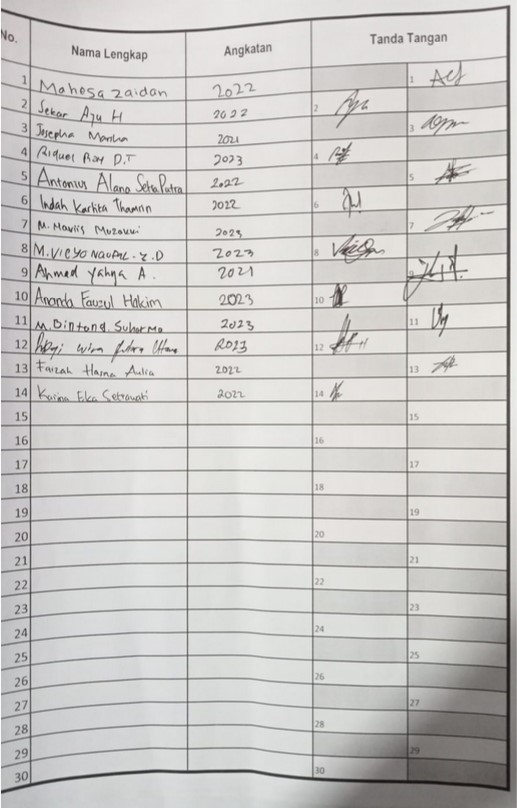 No. Nama Lengkap Angkatan Tanda Tangan
1 Mahesa Zaidan 2022 1
2 Sekar Ayu H 2022 2
3 Josepha Marsha 2021 3
4 Riquel Roy D.T 2023 4
5 Antonius Alano Setia Putra 2022 5
6 Indah Kartita Thamrin 2022 6
7 M. Mavlis 2023 7
8 M. VIEYO NAUFAL. Z. D 2023 8
9 Ahmad Yahya A. 2021 9
10 Ananda Fauzul Hakim 2023 10
11 M. Bintang. Suharmo 2023 11
12 2023 12
13 Faizah Hasna Aulia 2022 13
14 Karina Eka Setiawati 2022 14
15 15
16 16
17 17
18 18
19 19
20 20
21 21
22 22
23 23
24 24
25 25
26 26
27 27
28 28
29 29
30 30